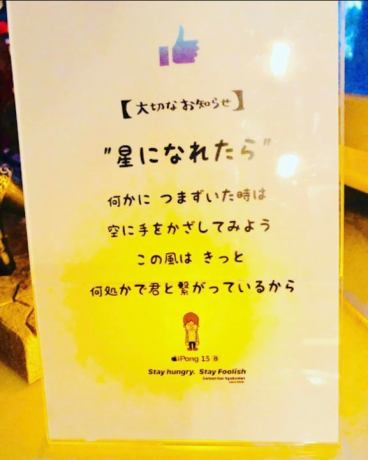 【大切なお知らせ】
"星になれたら"
何かに つまずいた時は
空に手をかざしてみよう
この風は きっと
何処かで君と繋がっているから
iPong 15 8
Stay hungry. Stay Foolish